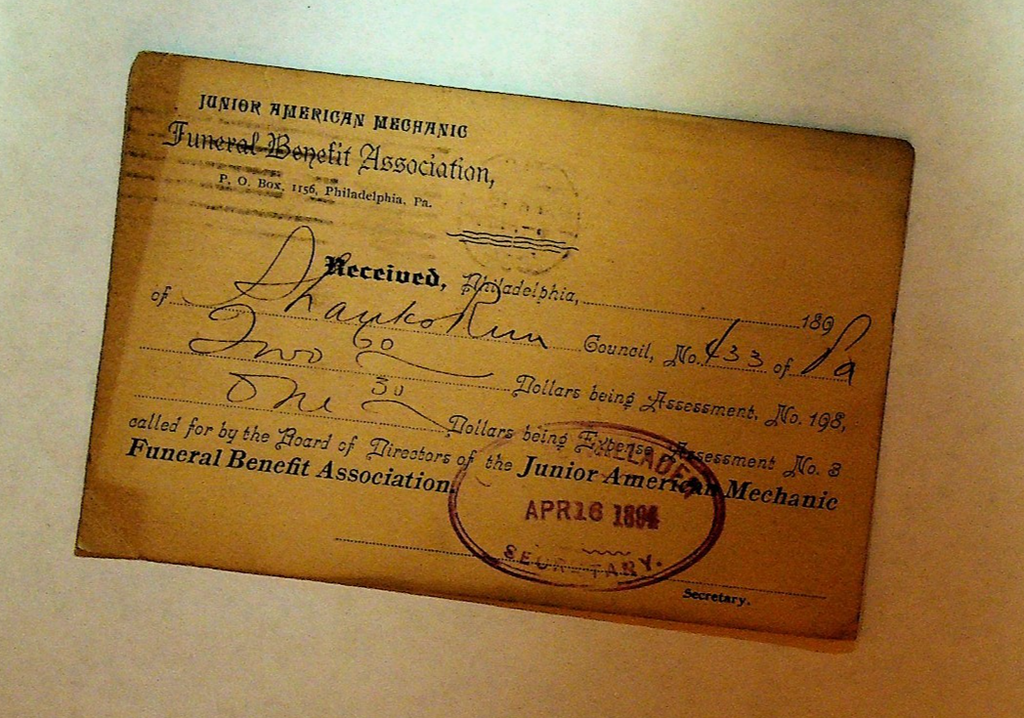 JUNIOR AMERICAN MECHANIC
Funeral Benefit Association,
P. O. Box, 1156, Philadelphia, Pa.
Received, Philadelphia, 189
of Council, No. 433 of Pa
Two 60 Dollars being Assessment, No. 198,
One 30 Dollars being Expense Assessment No. 3
called for by the Board of Directors of the Junior American Mechanic
Funeral Benefit Association.
APR 16 1894
SECRETARY.
Secretary.